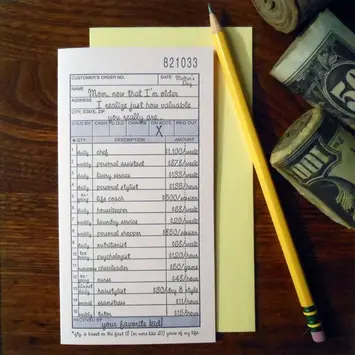 821033
CUSTOMER'S ORDER NO. DATE Mother's Day
NAME Mom, now that I'm older
ADDRESS I realize just how valuable
CITY, STATE, ZIP you really are...
SOLD BY CASH C.O.D. CHARGE ON ACCT. X PAID OUT
QTY. DESCRIPTION AMOUNT
1 daily chef $1,100/week
2 daily personal assistant
3 daily livery service
4 daily personal stylist $135/hour
5 life coach $500/session
6 daily housekeeper
7 daily laundry service
8 personal shopper
9 daily nutritionist
10 psychologist $120/hour
11 cheerleader $50/game
12 nurse
13 hairstylist
14 seamstress $11/hour
15 tutor $15/hour
RECEIVED BY your favorite kid!
*qty. is based on the first 18 (or more like 20) years of my life